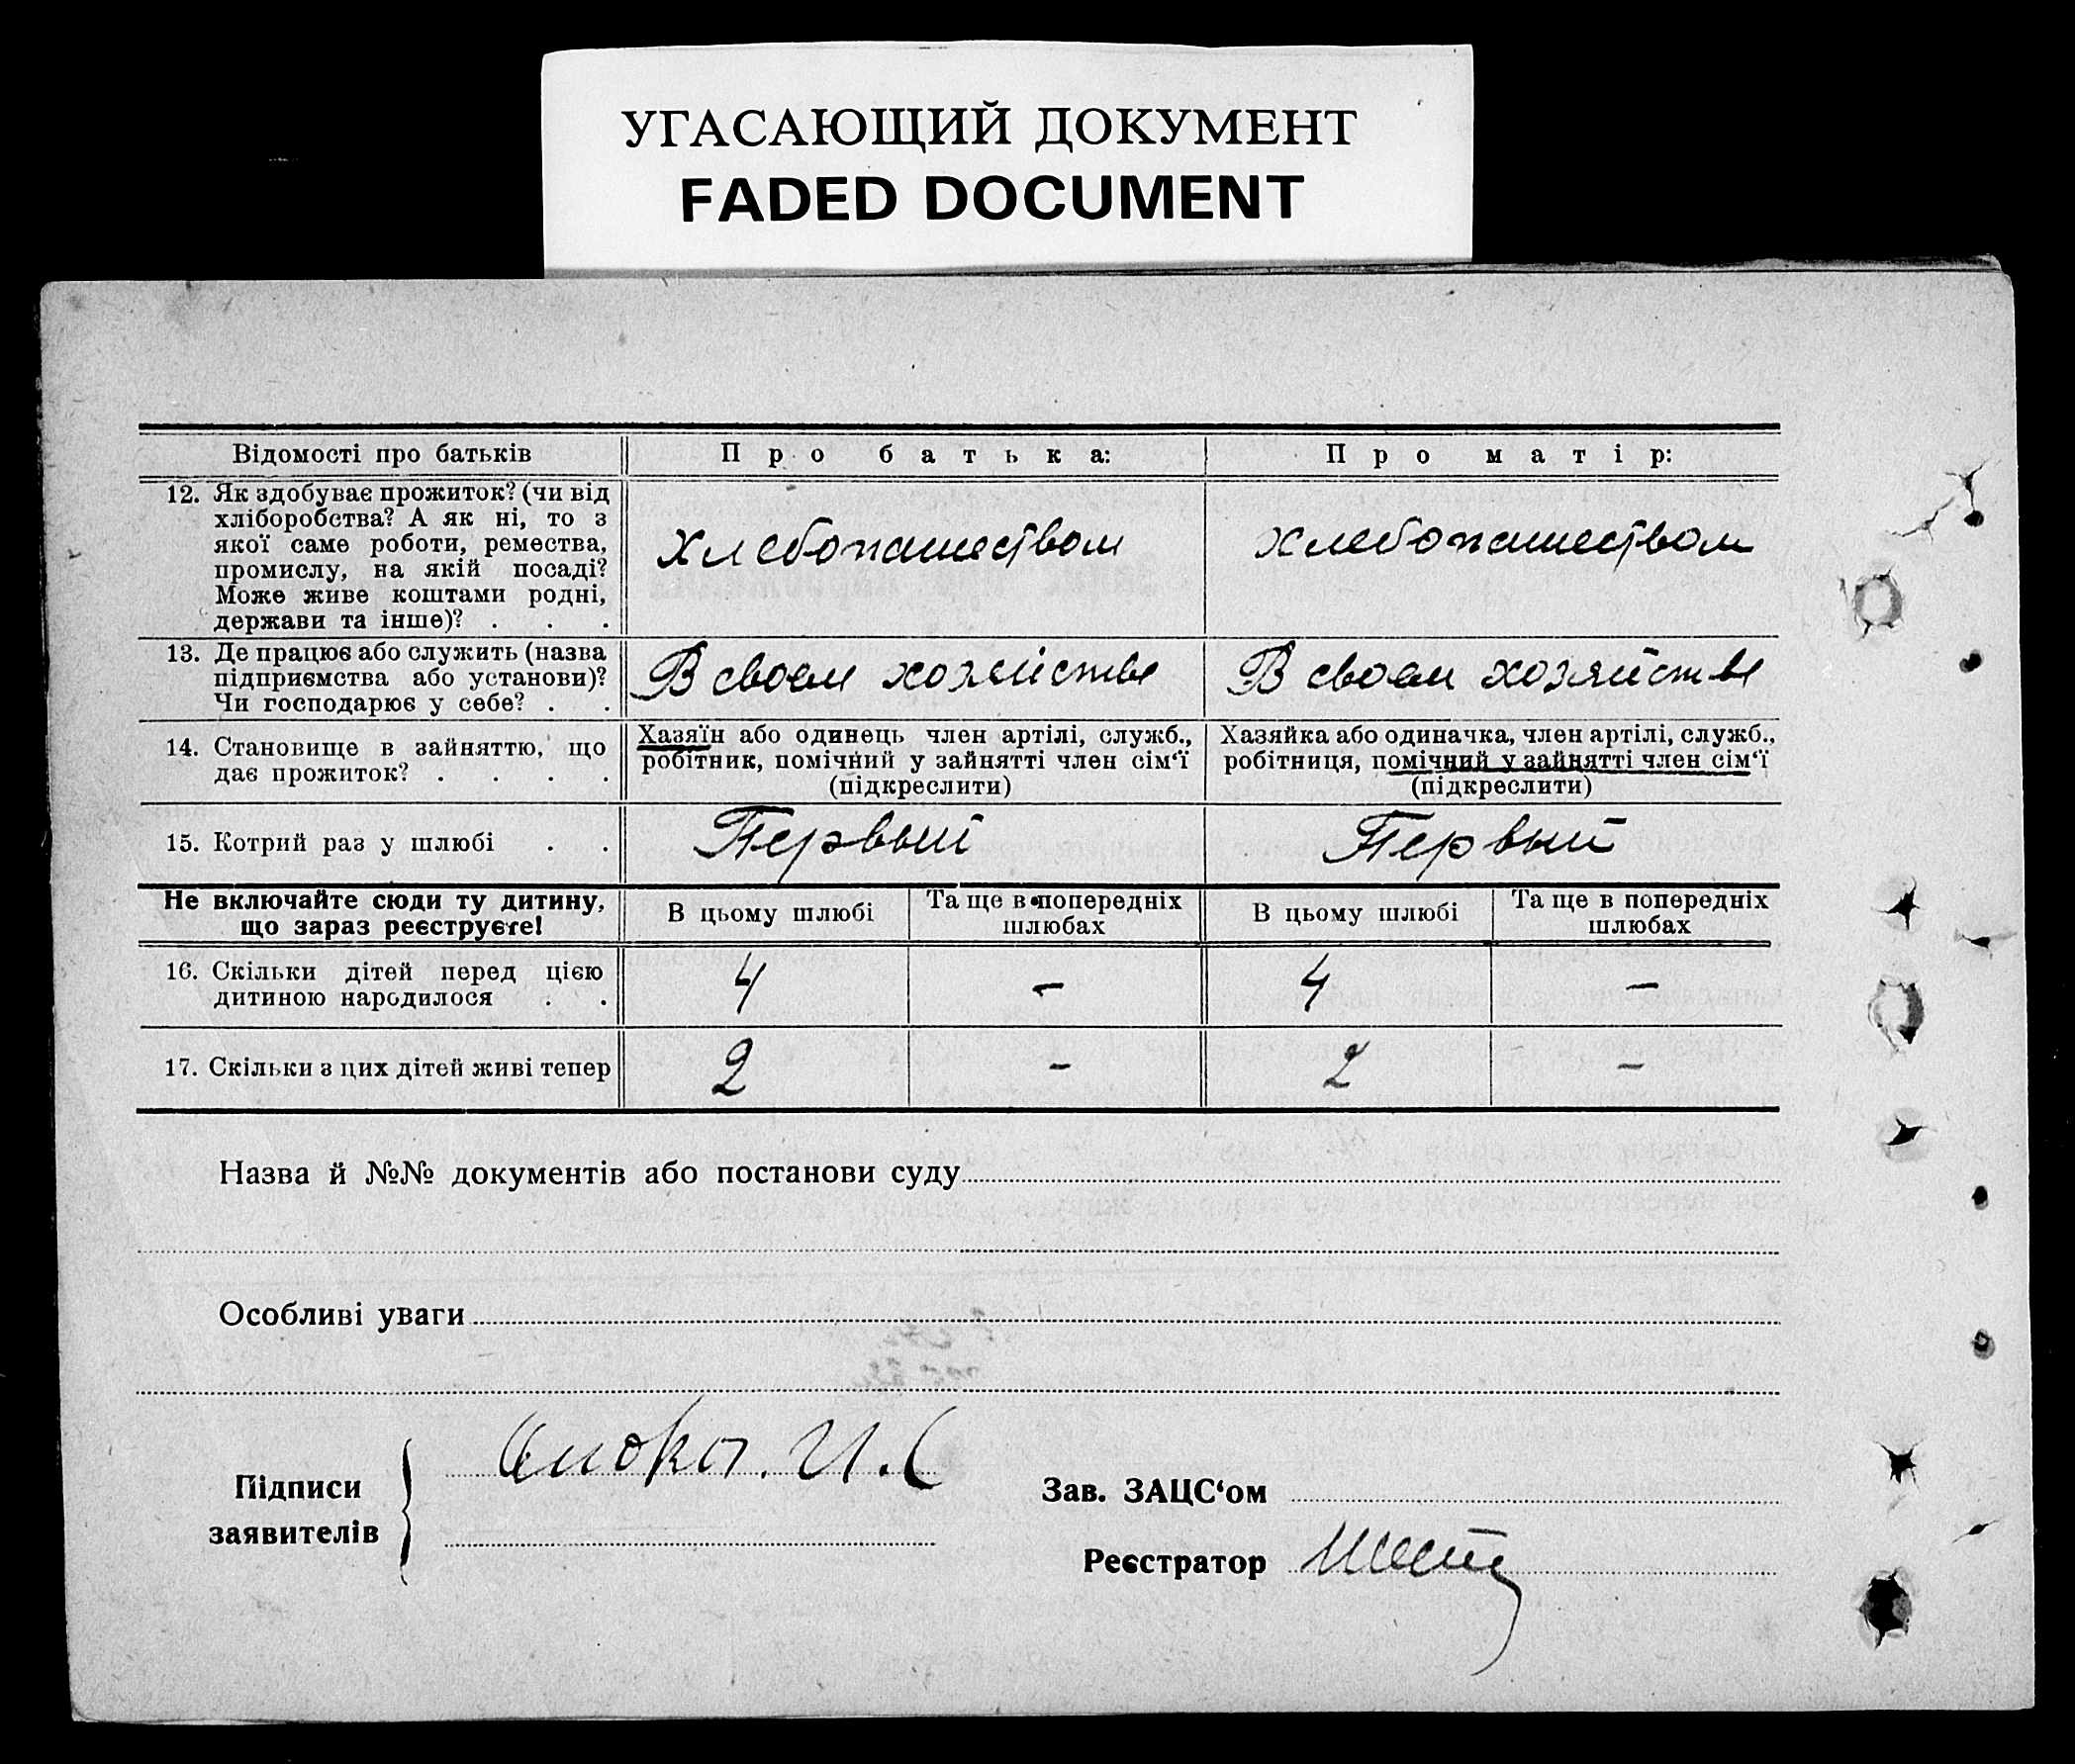 УГАСАЮЩИЙ ДОКУМЕНТ
FADED DOCUMENT
Відомості про батьків
Про батька:
Про матір:
12. Як здобуває прожиток? (чи від
хліборобства? А як ні, то з
якої саме роботи, ремества,
промислу, на якій посаді?
Може живе коштами родні,
держави та інше)? . . .
Хлебопашеством
Хлебопашеством
13. Де працює або служить (назва
підприємства або установи)?
Чи господарює у себе? . .
В своем хозяйстве
В своем хозяйстве
14. Становище в зайняттю, що
дає прожиток? . . . .
Хазяїн або одинець член артілі, служб.,
робітник, помічний у зайнятті член сім‘ї
(підкреслити)
Хазяйка або одиначка, член артілі, служб.,
робітниця, помічний у зайнятті член сім‘ї
(підкреслити)
15. Котрий раз у шлюбі . .
Первый
Первый
Не включайте сюди ту дитину,
що зараз реєструєте!
В цьому шлюбі
Та ще в попередніх
шлюбах
В цьому шлюбі
Та ще в попередніх
шлюбах
16. Скільки дітей перед цією
дитиною народилося . .
4
–
4
–
17. Скільки з цих дітей живі тепер
2
–
2
–
Назва й №№ документів або постанови суду
Особливі уваги
Підписи
заявителів
Зав. ЗАЦС‘ом
Реєстратор